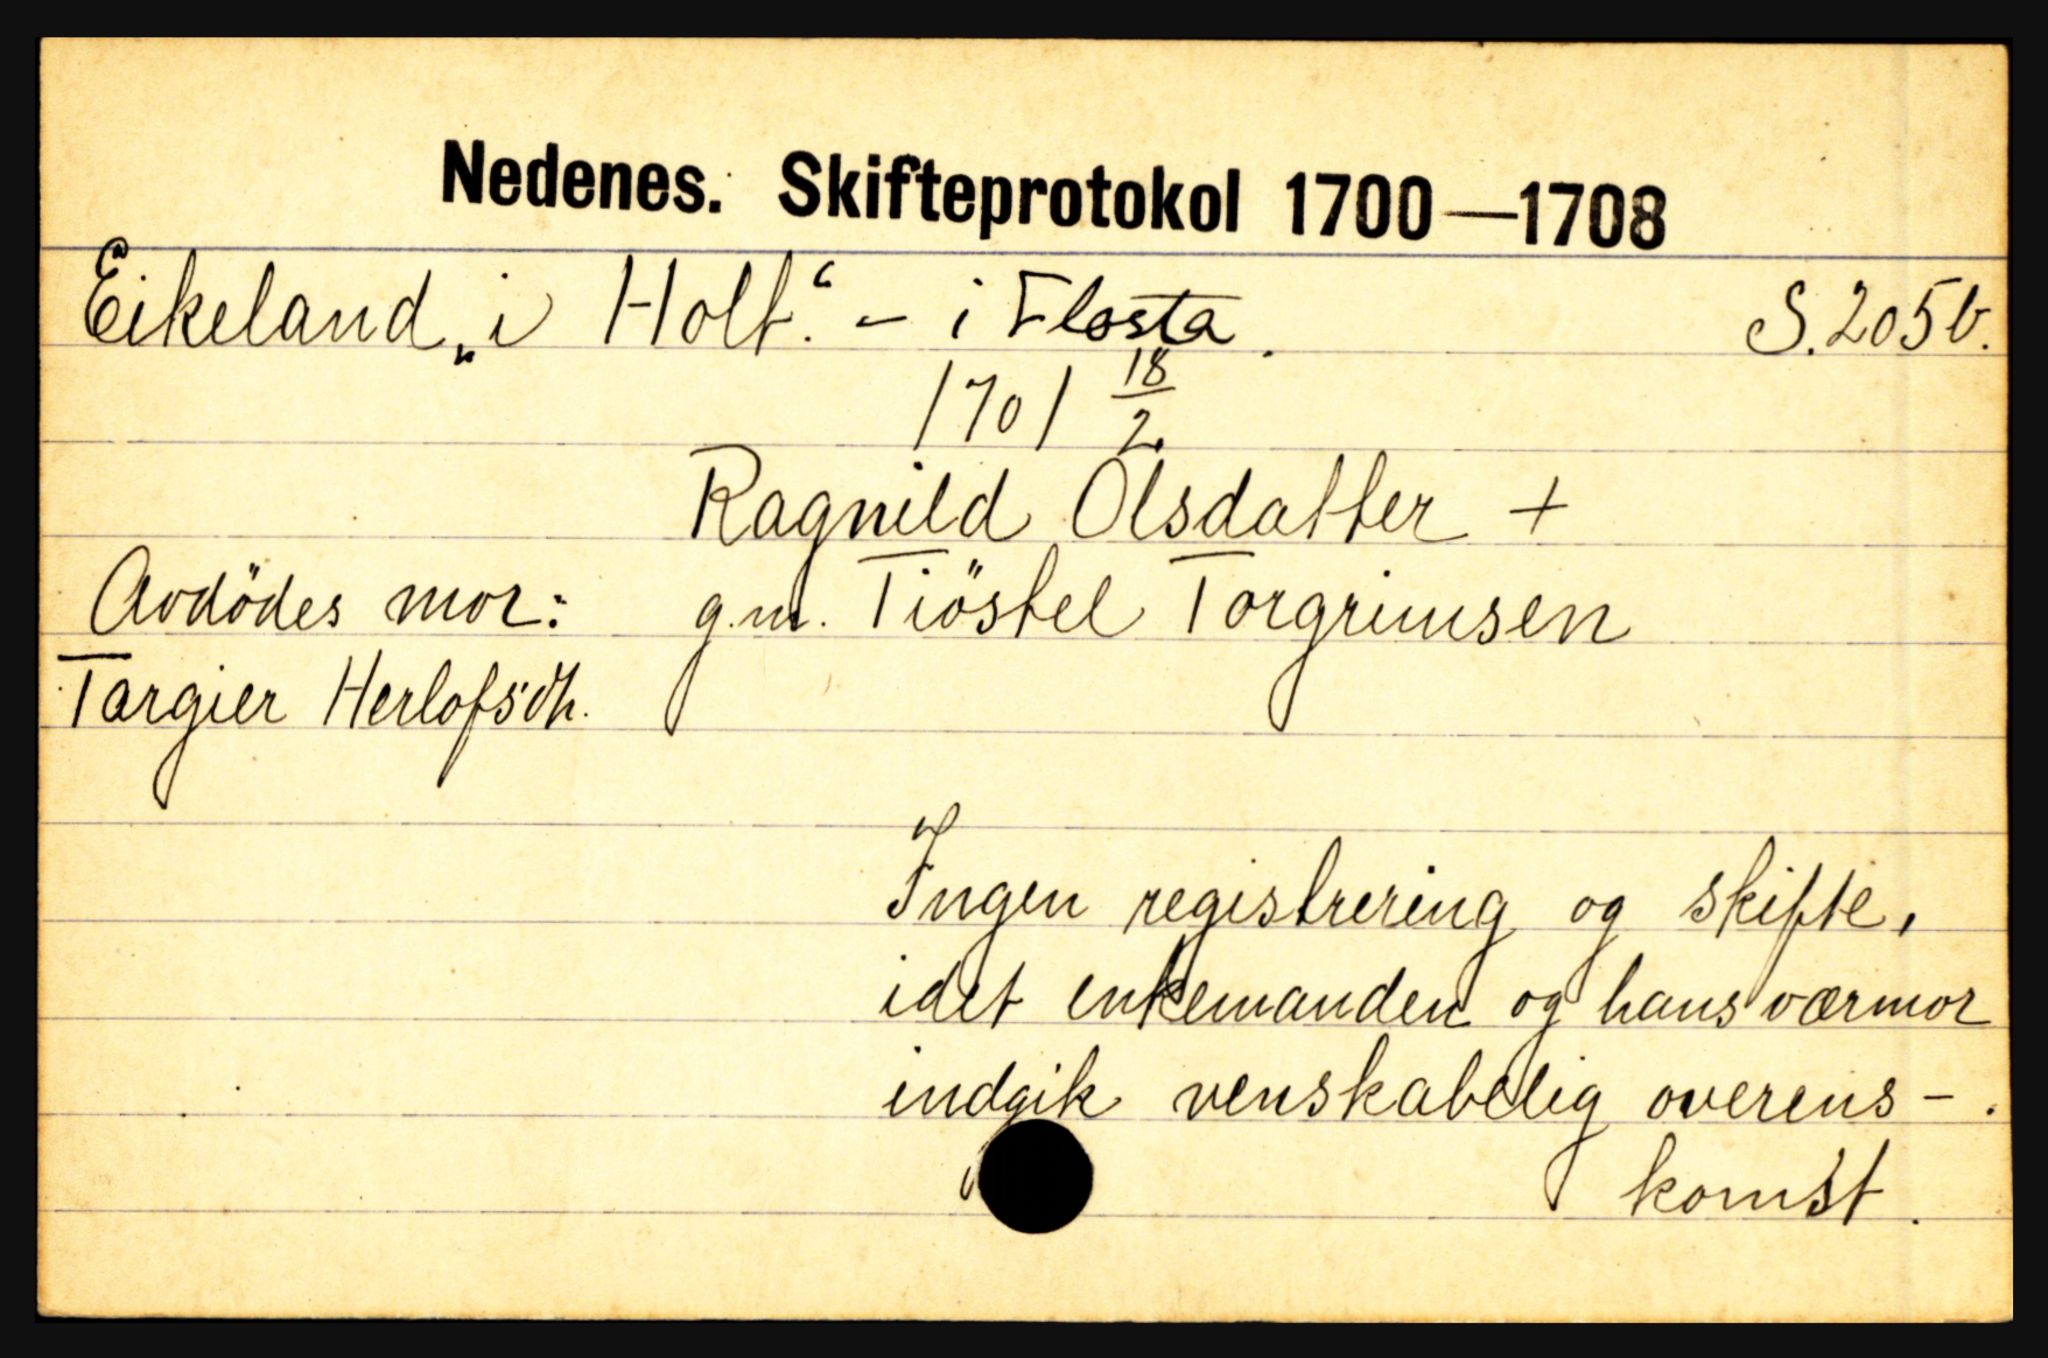 Nedenes. Skifteprotokol 1700—1708
Eikeland „i Holt.“ – i Flosta. S. 205b.
1701 18/2.
Ragnild Olsdatter +
Avdödes mor: g.m. Tiöstel Torgrimsen
Targier Herlofsdtr.
Ingen registrering og skifte,
idet enkemanden og hans værmor
indgik venskabelig overens-
komst.